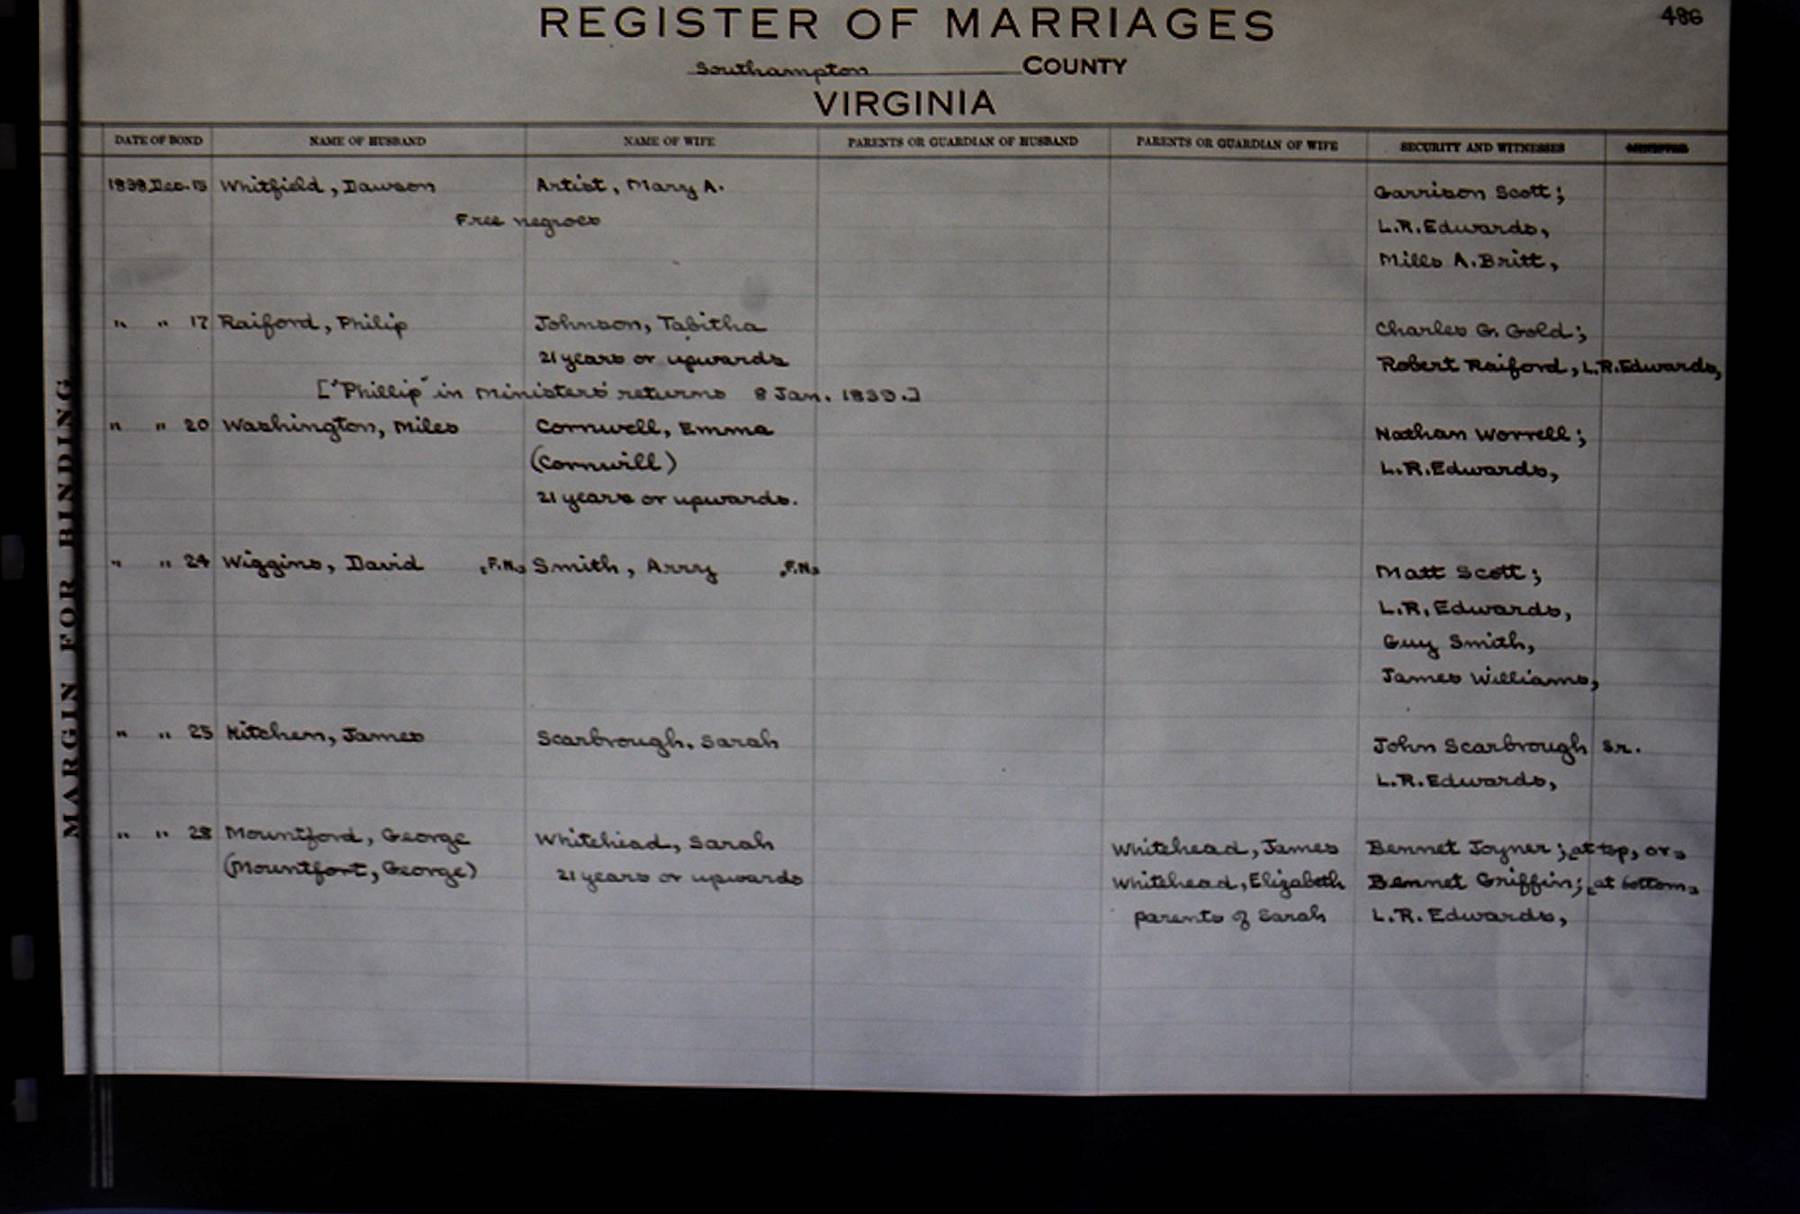 486
REGISTER OF MARRIAGES
Southampton COUNTY
VIRGINIA
MARGIN FOR BINDING
DATE OF BOND NAME OF HUSBAND NAME OF WIFE PARENTS OR GUARDIAN OF HUSBAND PARENTS OR GUARDIAN OF WIFE SECURITY AND WITNESSES
1838, Dec. 15 Whitfield, Dawson Artist, Mary A. Garrison Scott;
Free negroes L.R. Edwards,
Mills A. Britt,
" " 17 Raiford, Philip Johnson, Tabitha Charles G. Gold;
21 years or upwards Robert Raiford, L.R. Edwards,
["Phillip" in ministers' returns 8 Jan. 1839.]
" " 20 Washington, Miles Cornwell, Emma Nathan Worrell;
(Cornwill) L.R. Edwards,
21 years or upwards.
" " 24 Wiggins, David F.N. Smith, Arry F.N. Matt Scott;
L.R. Edwards,
Guy Smith,
James Williams,
" " 25 Kitchen, James Scarbrough, Sarah John Scarbrough Sr.
L.R. Edwards,
" " 28 Mountford, George Whitehead, Sarah Whitehead, James Bennet Joyner; at top, or
(Mountfort, George) 21 years or upwards Whitehead, Elizabeth Bennet Griffin; at bottom
parents of Sarah L.R. Edwards,